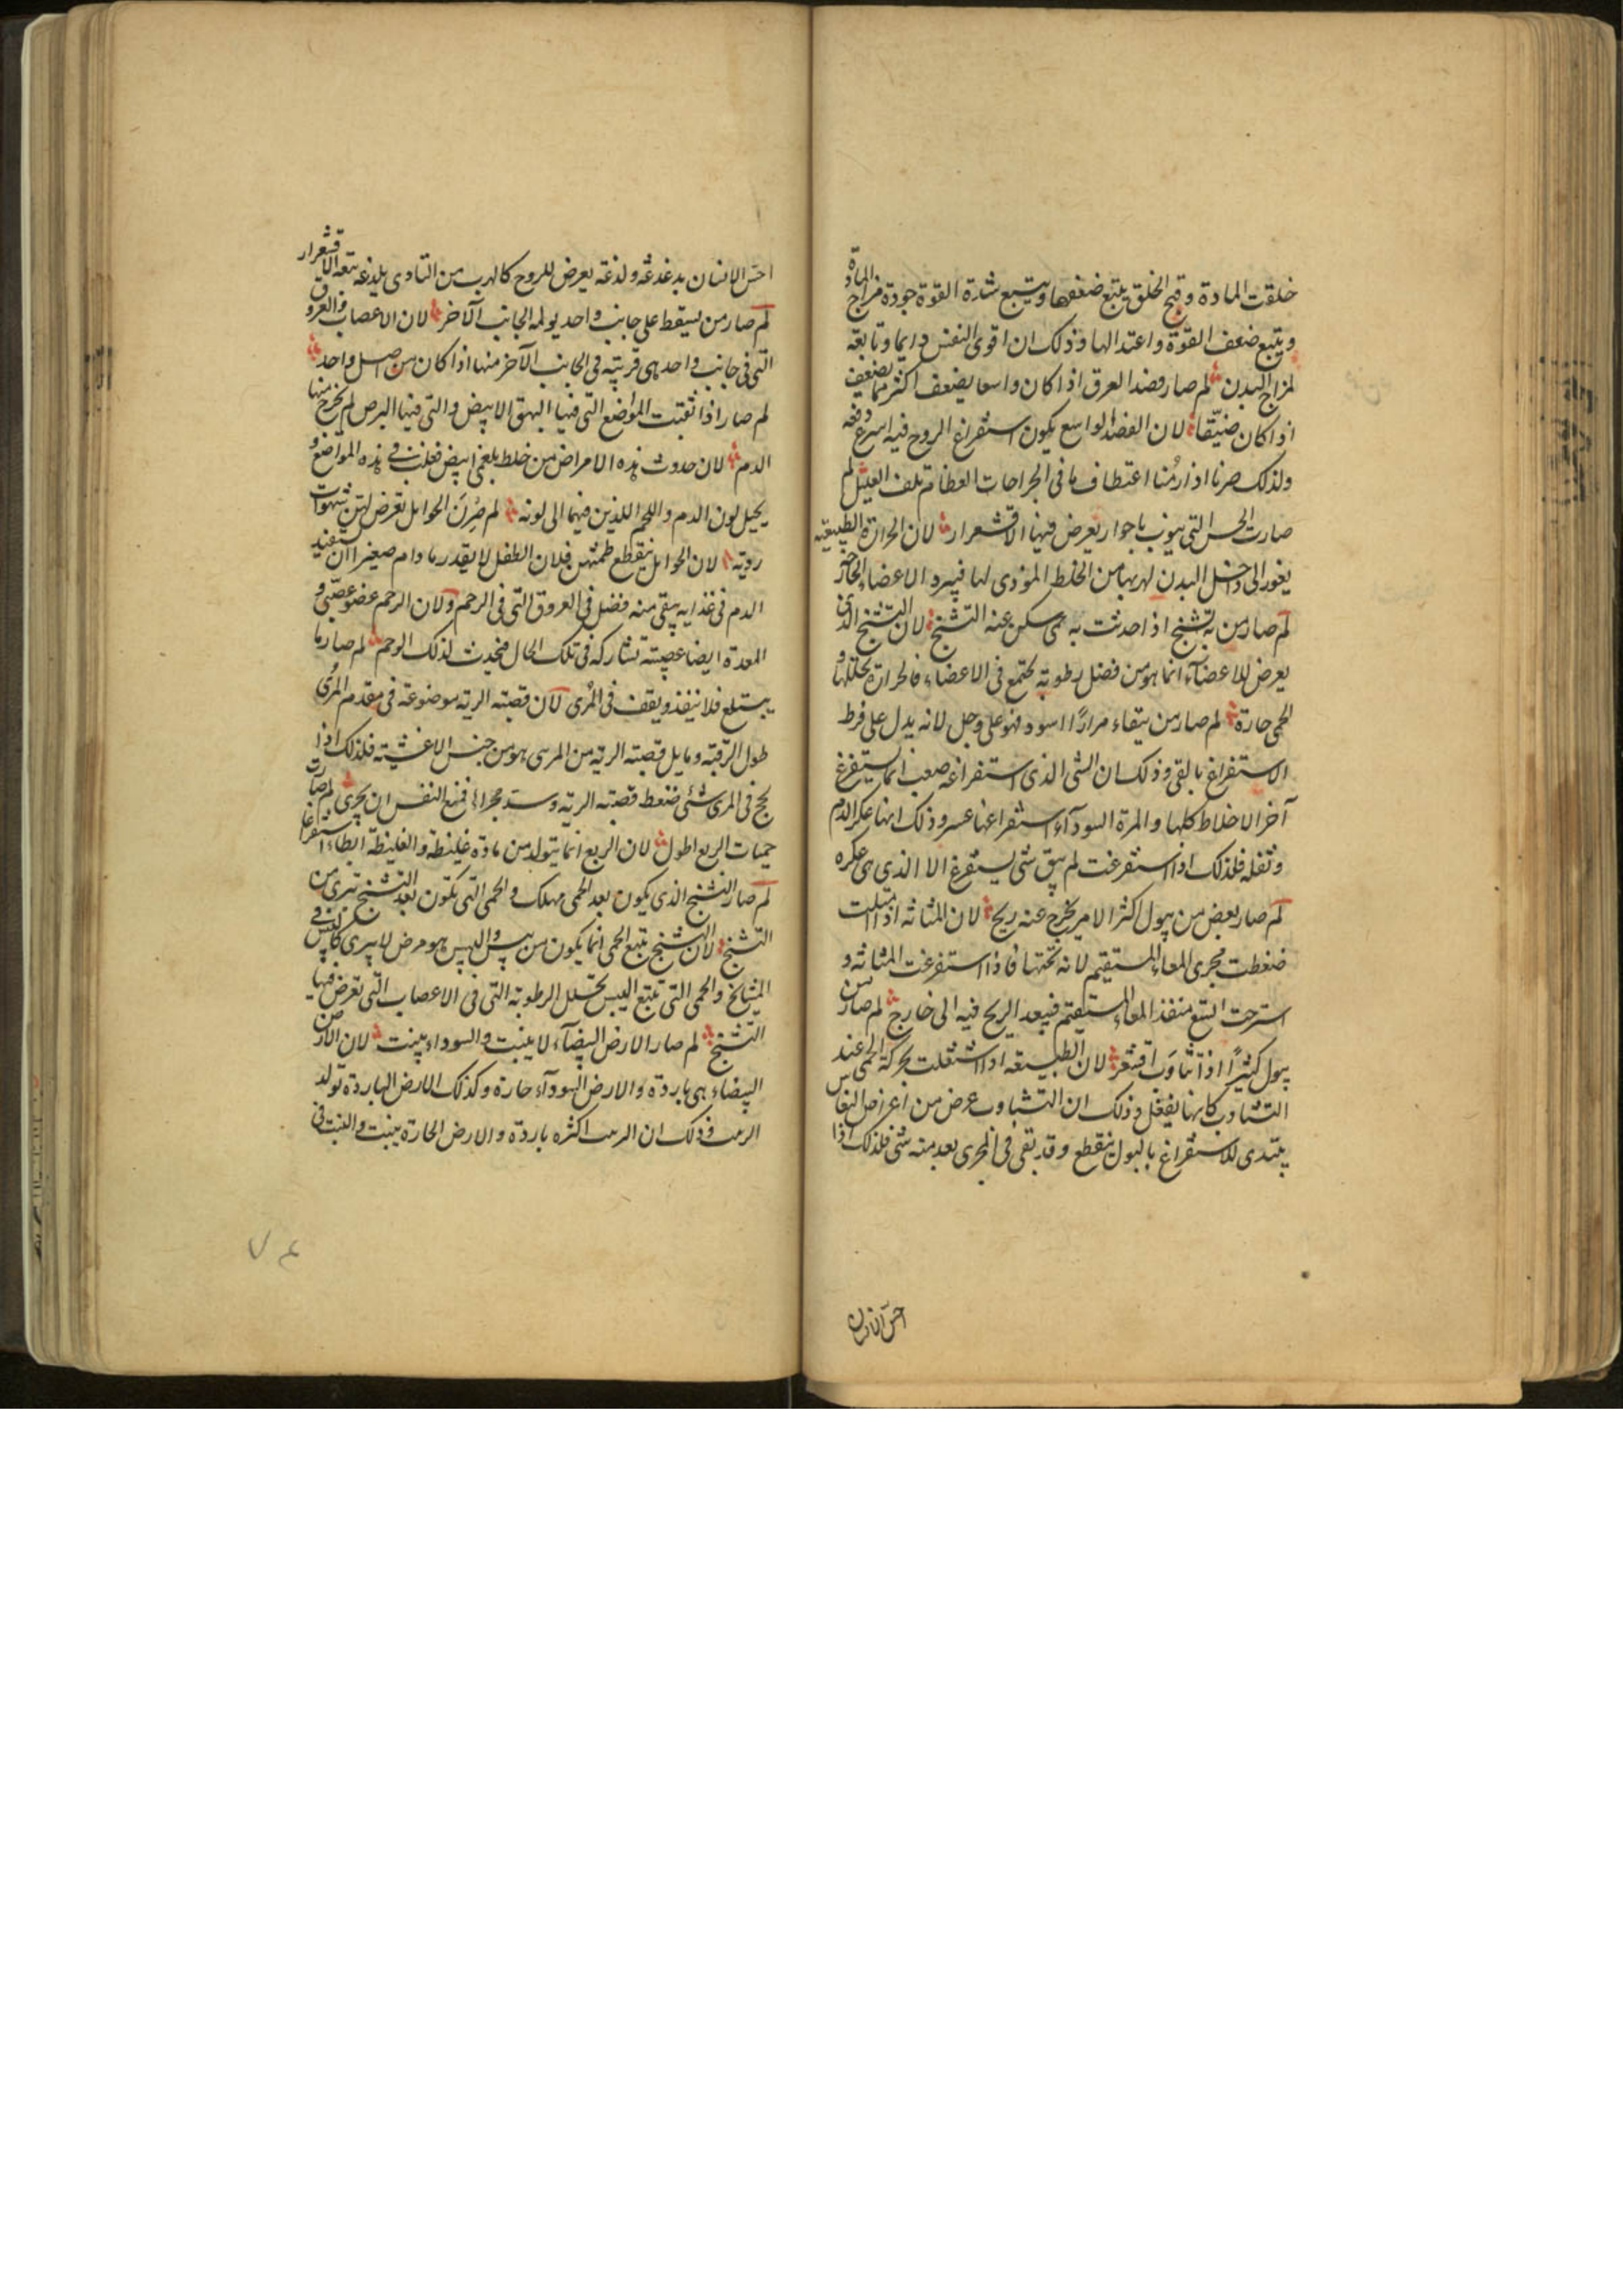 خلقت المادة وقبح الخلق يتبع ضعفها ويتبع شدة القوة جودة مزاج المادة
ويتبع ضعف القوة واعتدالها وذلك ان قوى النفس دايما تابعة
لمزاج البدن لم صار فصد العرق اذا كان واسعا يضعف اكثر مما يضعف
اذا كان ضيّقا لان الفصد الواسع يكون استفراغ الروح فيه اسرع دفعه
ولذلك صرنا اذا رمنا ما فى الجراحات العظام تلف العليل لم
صارت الحمى التى تنوب بادوار يعرض فيها الاقشعرار لان الحرارة الطبيعية
يغور الى داخل البدن لهربها من الخلط المؤذى لها فيبرد الاعضاء الخارجة
لم صار من به تشنج اذا حدثت به حمى سكن عنه التشنج لان التشنج الذى
يعرض للاعضاء انما هو من فضل رطوبة تجتمع فى الاعضاء فالحرارة تحللها و
الحمى حارة لم صار من يتقياء مرارًا اسود فهو على وجل لانه يدل على فرط
الاستفراغ بالقى وذلك ان الشى الذى استفراغه صعب انما يستفرغ
آخر الاخلاط كلها والمرة السوداء استفراغها عسر وذلك انها عكر الدم
وثفله فلذلك اذا استفرغت لم يبق شى يستفرغ الا الذى هى عكره
لم صار بعض من يبول اكثر الامر يخرج عنه ريح لان المثانة اذا امتلت
ضغطت مجرى المعاء المستقيم لانه تحتها فاذا استفرغت المثانة و
استرخت اتسع منفذ المعاء المستقيم فيبعد الريح فيه الى خارج لم صار من
يبول كثيرًا اذا تثاوب اقشعر لان الطبيعة اذا اشتغلت بحركة الحمى عند
التثاوب كانها يغفل وذلك ان التثاوب عرض من اعراض النعاس
يبتدى للاستفراغ بالبول ينقطع وقد بقى فى المجرى بعد منه شى فلذلك اذا
احسّ الانسان
احسّ الانسان بدغدغة ولذعة يعرض للروح كالهرب من التاذى بلذعه يتبعه الاقشعرار
لم صار من يسقط على جانب واحد يولمه الجانب الآخر لان الاعصاب والعروق
التى فى جانب واحد هى قريبة فى الجانب الآخر منها اذا كان من اصل واحد
لم صار اذا ثقبت المواضع التى فيها البهق الابيض والتى فيها البرص لم يخرج منها
الدم لان حدوث هذه الامراض من خلط بلغمى ابيض فغلبت فى هذه المواضع و
يحيل لون الدم واللحم اللذين فيهما الى لونه لم صرن الحوامل تعرض لهن شهوات
رديّة لان الحوامل ينقطع طمثهن فلان الطفل لا يقدر مادام صغيرا ان يستفيد
الدم فى غذايه يبقى منه فضل فى العروق التى فى الرحم ولان الرحم عضو عصبى و
المعدة ايضا عصبية تشاركه فى تلك الحال فيحدث لذلك الوحم لم صار ما
يبتلع فلا ينفذ ويقف فى المرى لان قصبة الرية موضوعة فى مقدم المرى
طول الرقبة وما يلى قصبة الرية من المرى هو من جنس الاغشية فلذلك اذا
لحج فى المرى شئى ضغط قصبة الرية وسد مجراها فمنع النفس ان يجرى لم صارت
حميات الربع اطول لان الربع انما يتولد من مادة غليظة والغليظة ابطاء استفراغا
لم صار التشنج الذى يكون بعد الحمى مهلك والحمى التى تكون بعد التشنج تبرى من
التشنج لان التشنج يتبع الحمى انما يكون من يبس واليبس هو مرض لا يبرى كاليبس فى
المشايخ والحمى التى تتبع اليبس تحلل الرطوبة التى فى الاعصاب التى تعرض فيها
التشنج لم صار الارض البيضاء لا ينبت والسوداء ينبت لان الارض
البيضاء هى باردة والارض السوداء حارة وكذلك الارض الباردة تولد
وذلك ان اكثره باردة والارض الحارة ينبت والنبت فى